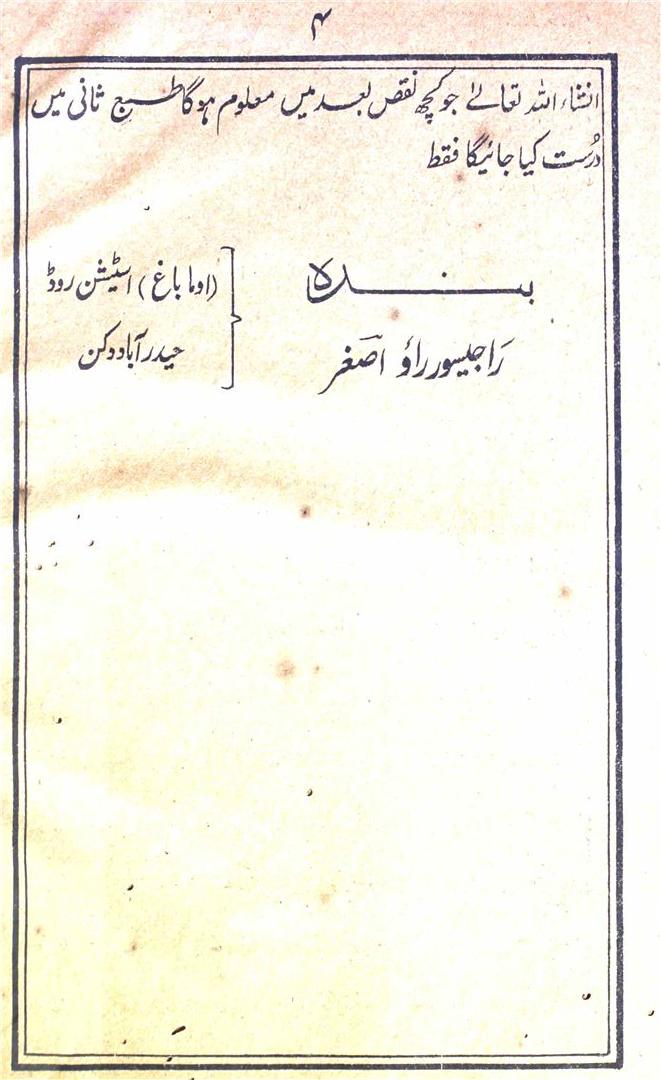 ۴
انشاء اللہ تعالےٰ جو کچھ نقص بعد میں معلوم ہوگا طبع ثانی میں
درُست کیا جائیگا فقط
بندہ
رَاجیسور راؤ اصغر
(اوما باغ) اسٹیشن روڈ
حیدرآباد دکن